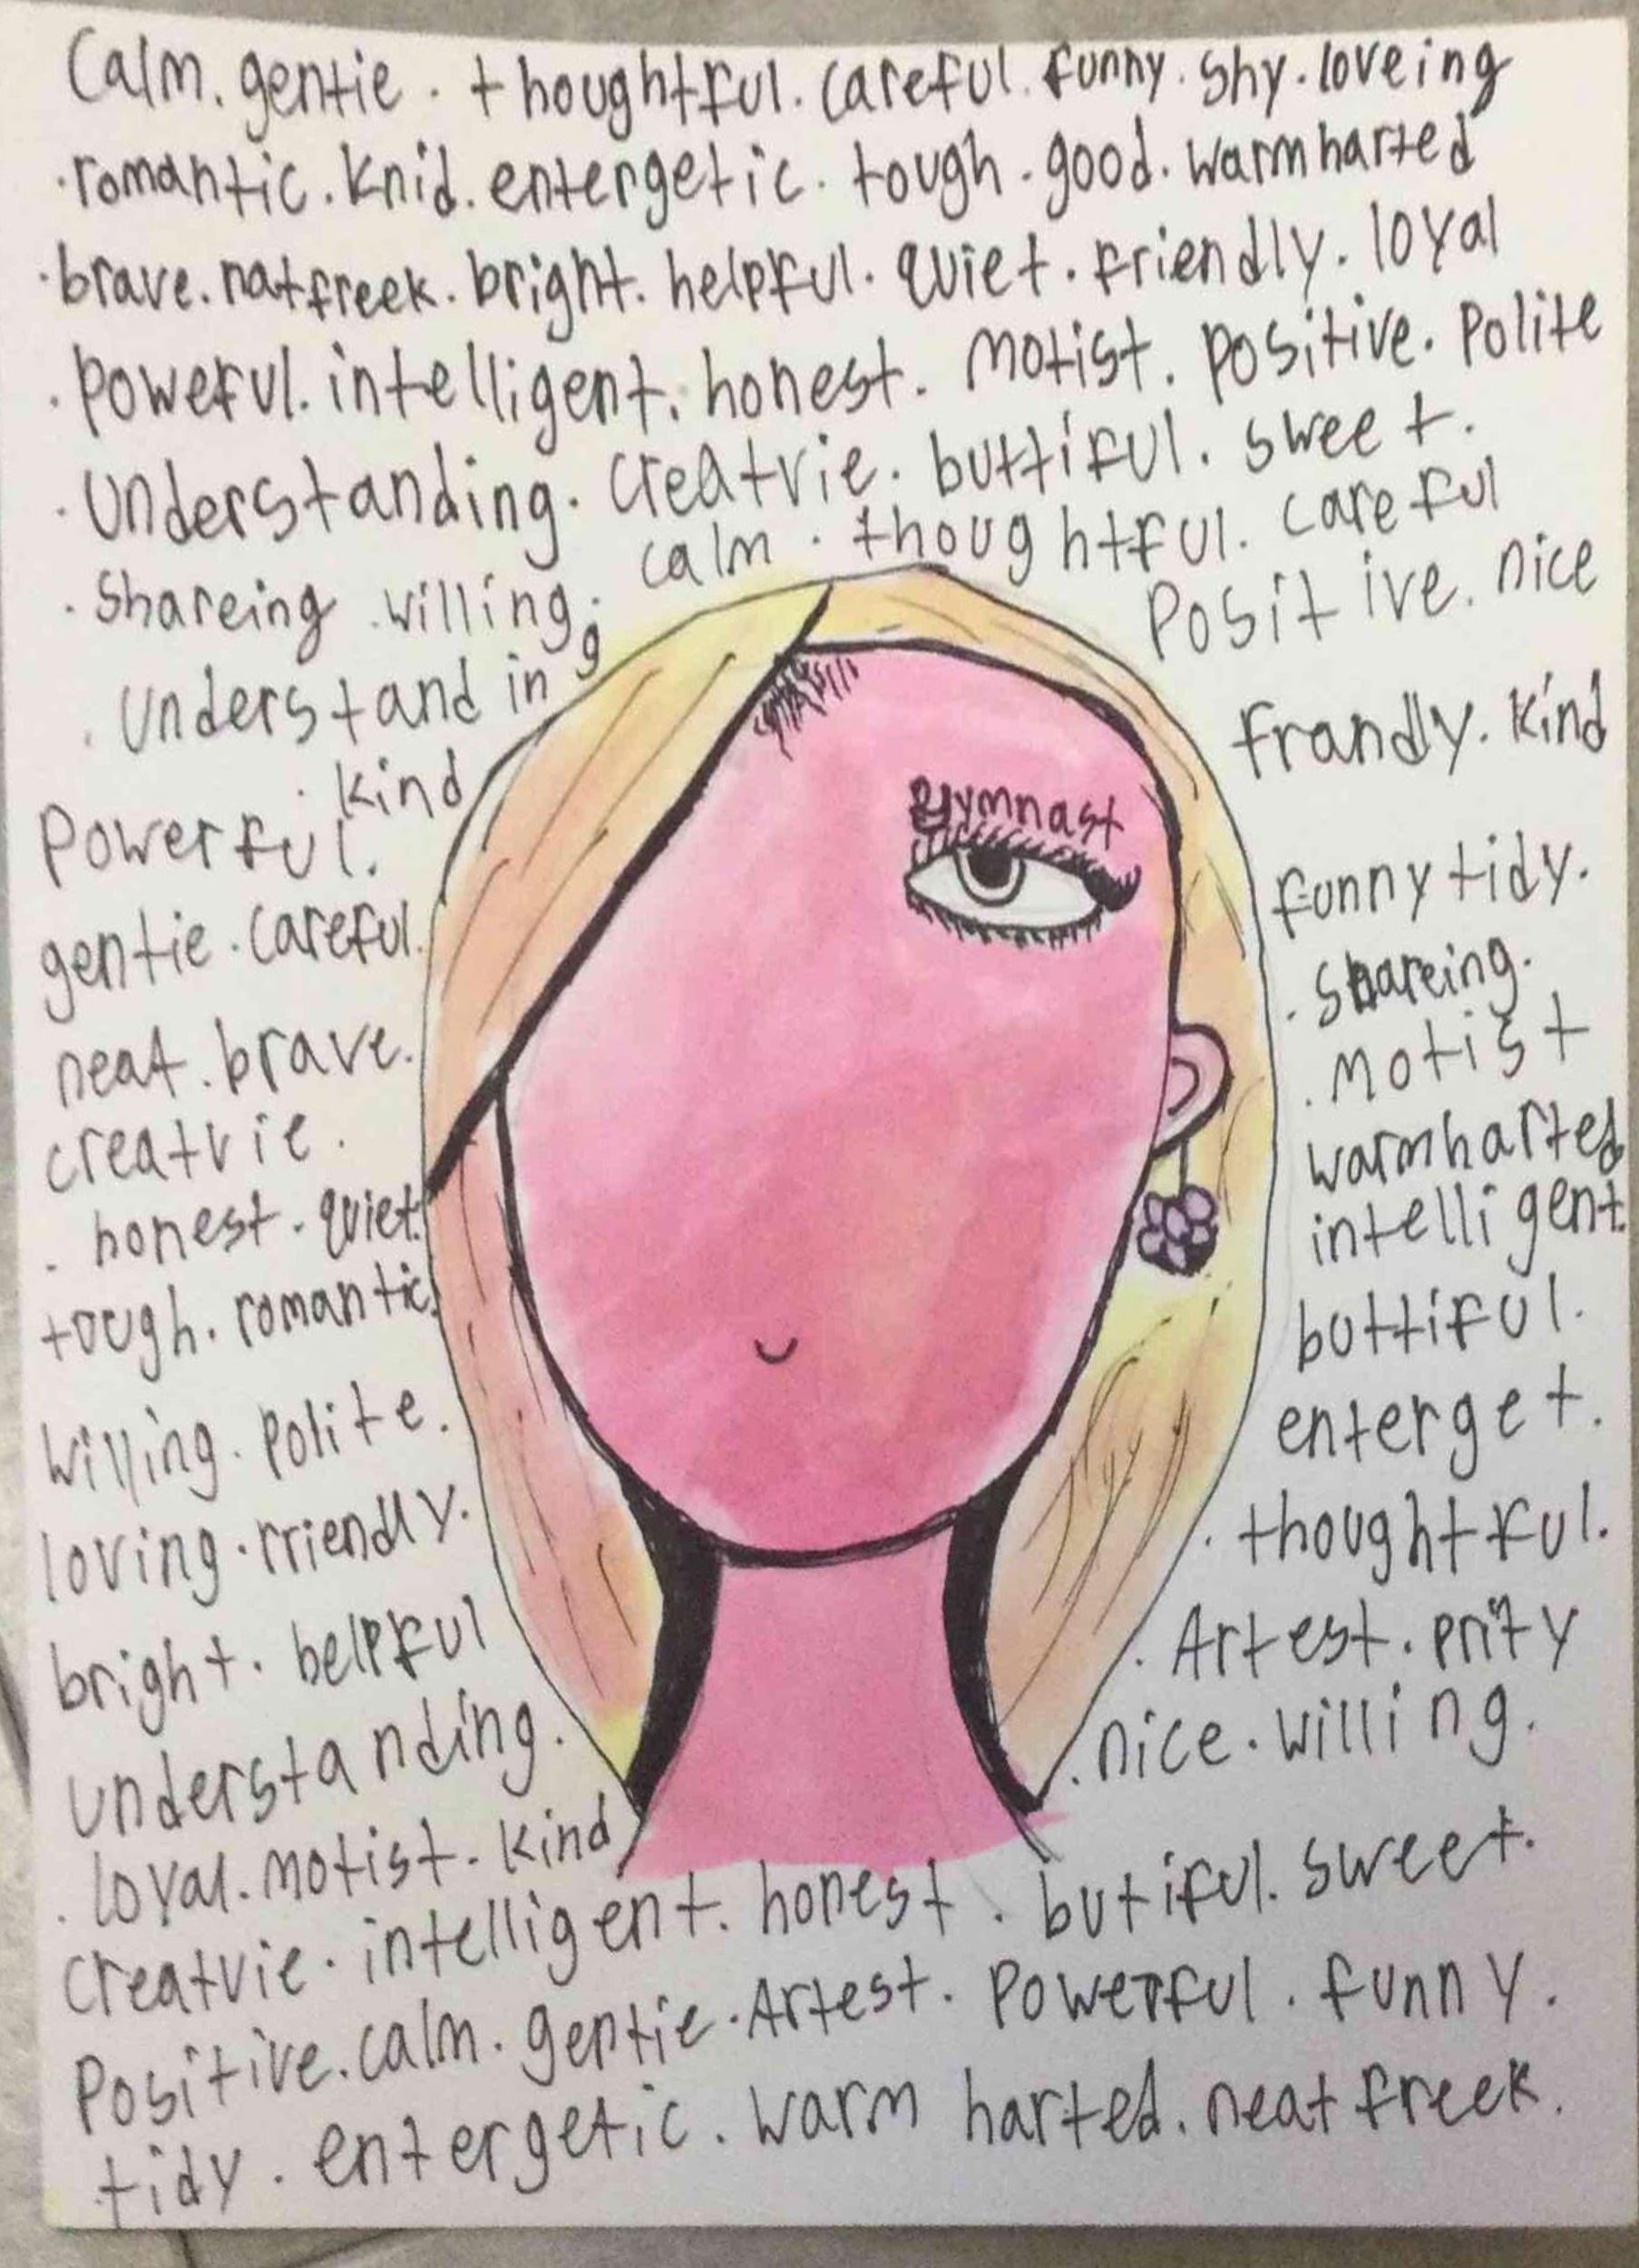 Calm. gentie. thoughtful. careful. funny. shy. loveing
·romantic. Knid. entergetic. tough. good. warmharted
·brave. natfreek. bright. helpful. quiet. friendly. loyal
·powerful. intelligent. honest. motist. positive. polite
·understanding. creatvie. buttiful. sweet.
·shareing. willing. calm. thoughtful. careful
positive. nice
·understanding
·kind
frandly. kind
powerful.
gymnast
funny tidy.
gentie. careful.
·shareing.
neat. brave.
·motist
creatvie.
warmharted
·honest. quiet.
intelligent.
tough. romantic.
buttiful.
willing. polite.
enterget.
loving. friendly.
·thoughtful.
bright. helpful
·Artest. prity
understanding.
·nice. willing.
·loyal. motist. kind
creatvie. intelligent. honest. butiful. sweet.
Positive. calm. gentie. Artest. powerful. funny.
tidy. entergetic. warm harted. neat freek.